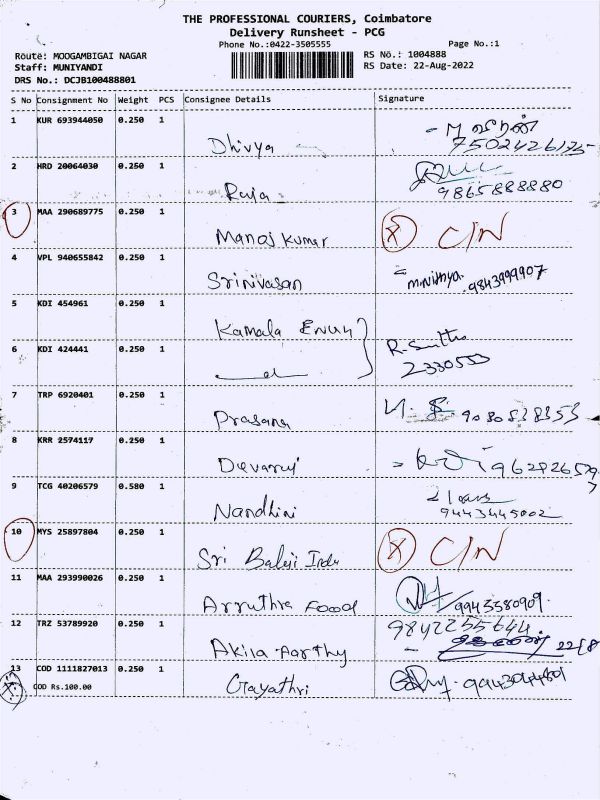 THE PROFESSIONAL COURIERS, Coimbatore
Delivery Runsheet - PCG
Phone No.:0422-3505555
Page No.:1
Route: MOOGAMBIGAI NAGAR
RS No.: 1004888
Staff: MUNIYANDI
RS Date: 22-Aug-2022
DRS No.: DCJB100488801
S No Consignment No Weight PCS Consignee Details Signature
1 KUR 693944050 0.250 1 Dhivya - M
7502426125
2 HRD 20064030 0.250 1 Raja
9865888880
3 MAA 290689775 0.250 1 Manoj Kumar X C/N
4 VPL 940655842 0.250 1 Srinivasan = m.Nithya. 9843999907
5 KDI 454961 0.250 1 Kamala
6 KDI 424441 0.250 1 R. 
2330553
7 TRP 6920401 0.250 1 Prasana
8 KRR 2574117 0.250 1 Devaraj
9 TCG 40206579 0.580 1 Nandhini
9443445002
10 MYS 25897804 0.250 1 Sri Balaji X C/N
11 MAA 293990026 0.250 1 Arruthra Food 9943580909
12 TRZ 53789920 0.250 1 Akila Parthy 9842255644
22/8
13 COD 1111827013 0.250 1 Gayathri
COD Rs.100.00